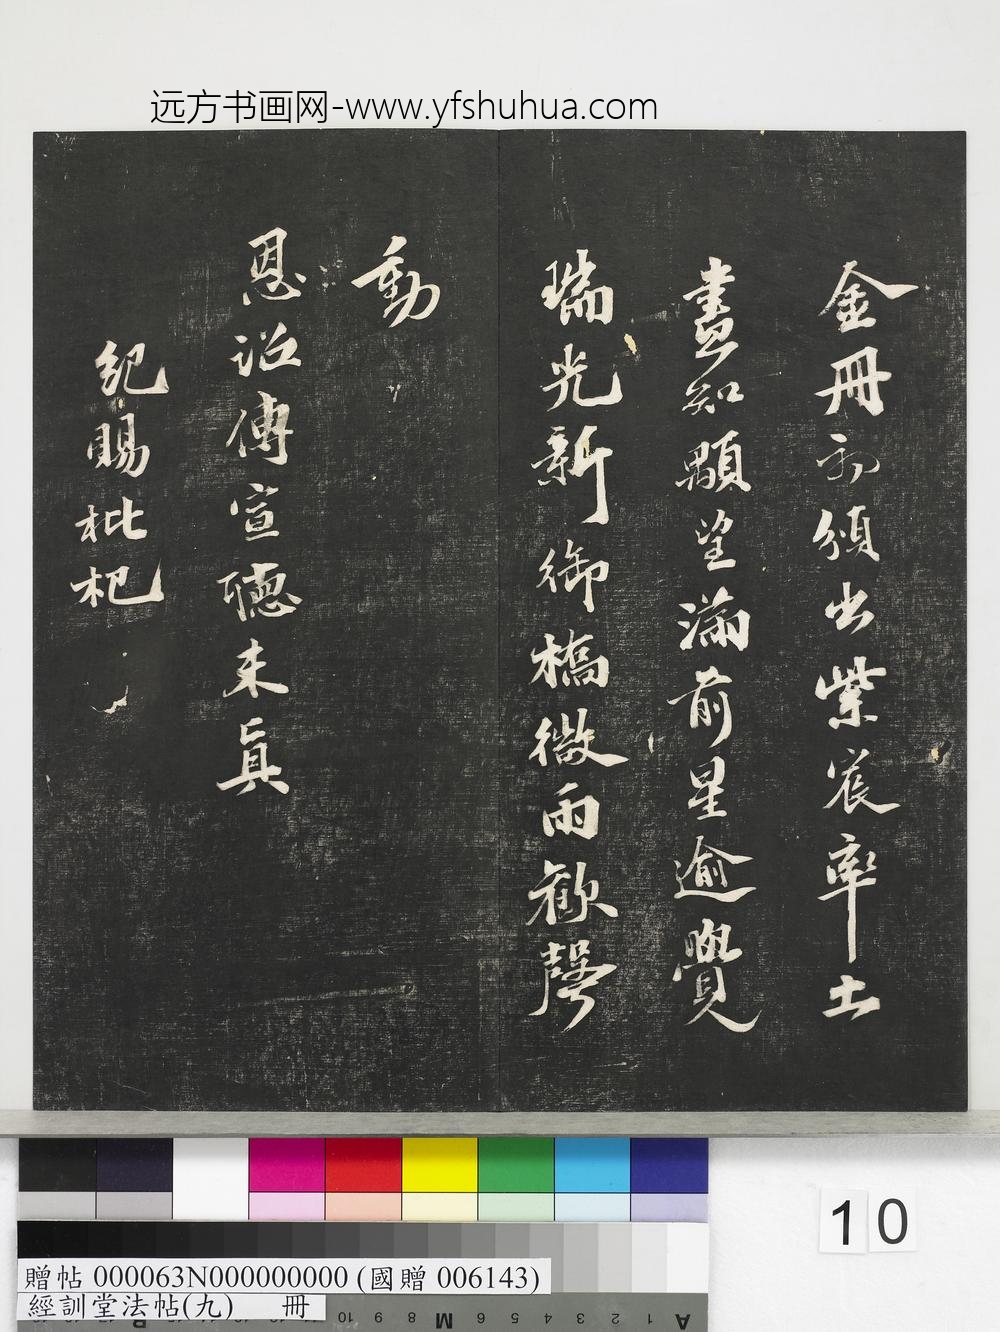 远方书画网-www.yfshuhua.com
金冊初頒出紫宸率土
盡知顒望滿前星逾覺
瑞光新御橋微雨歡聲
動
恩詔傳宣聽未真
紀賜枇杷
10
贈帖 000063N000000000 (國贈 006143)
經訓堂法帖(九) 冊